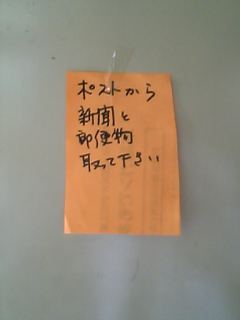 ポストから
新聞と
郵便物
取って下さい